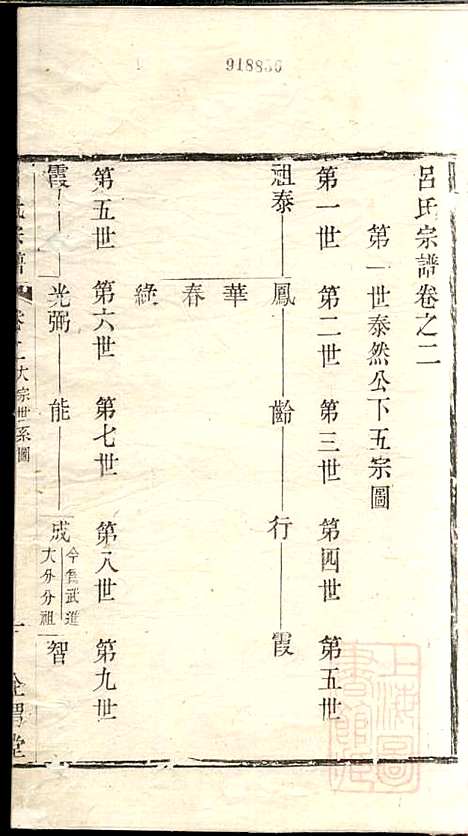 918836
呂氏宗譜卷之二
第一世泰然公下五宗圖
第一世 第二世 第三世 第四世 第五世
祖泰 鳳 齡 行 霞
華
春
綠
第五世 第六世 第七世 第八世 第九世
霞 光弼 能 成 智
今舊武進
大分分祖
氏宗譜 卷之二 大宗世系圖 一 渭堂
上海圖書館藏